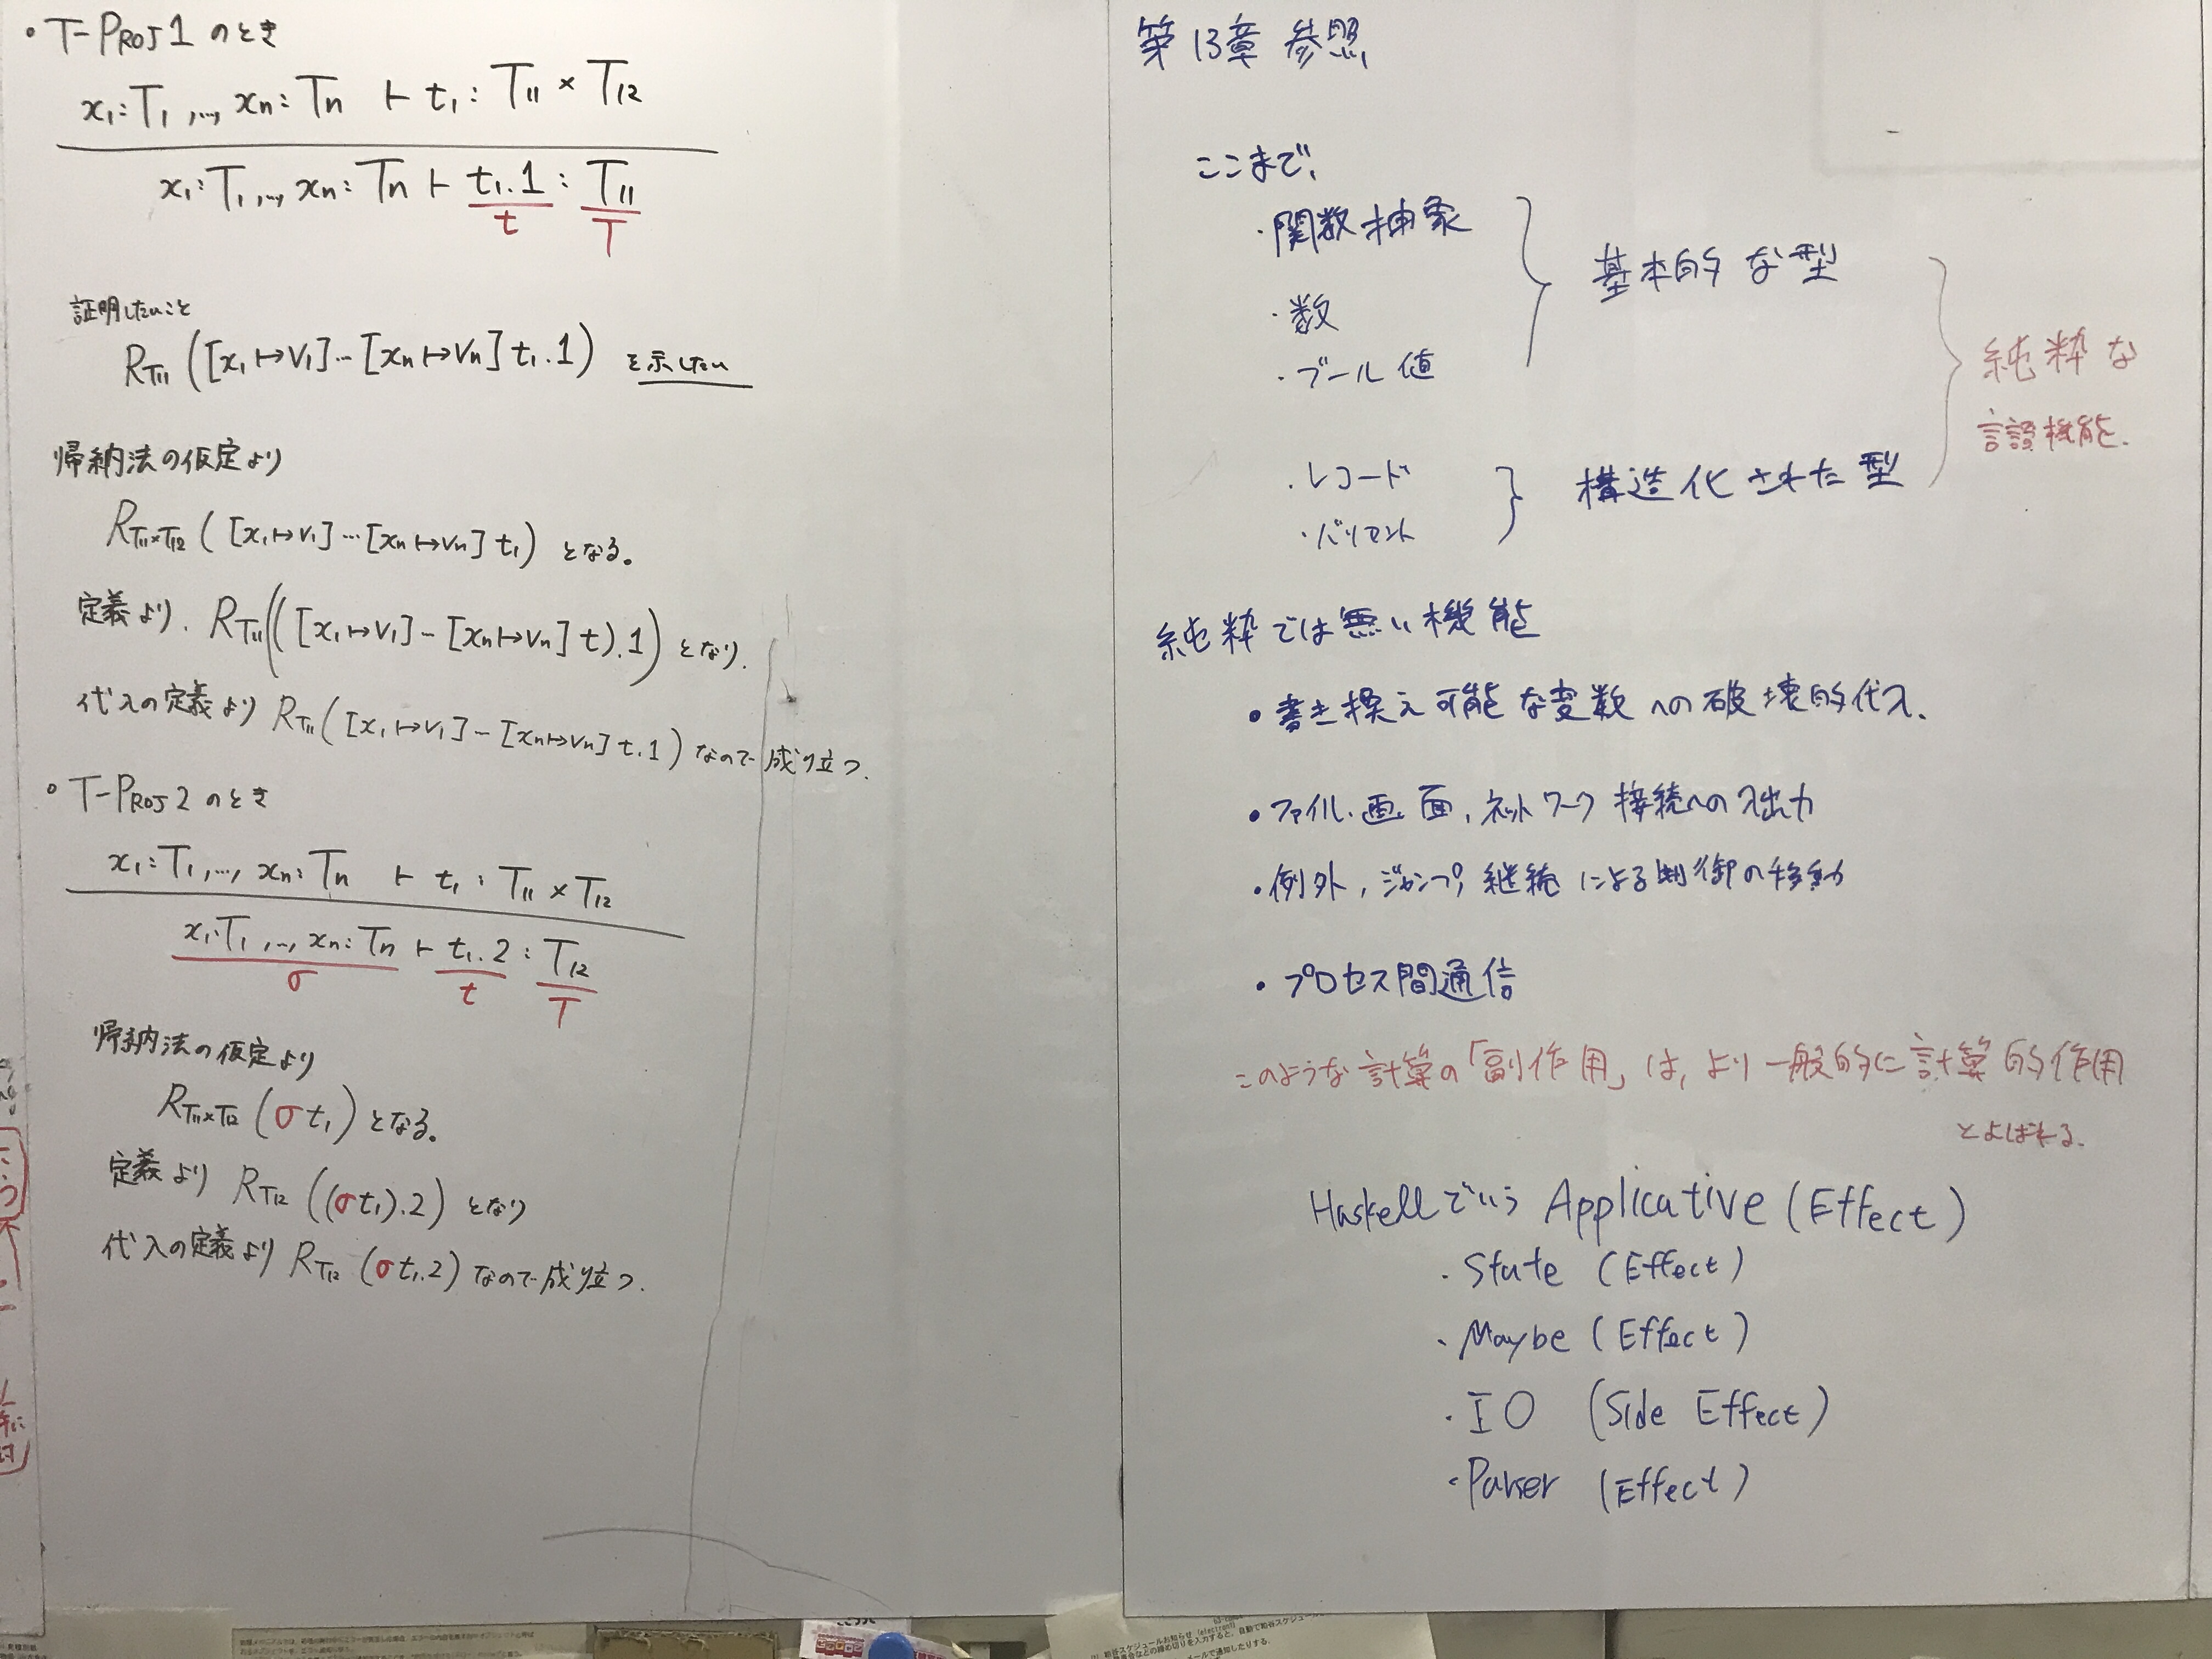 • T-PROJ1 のとき
x₁:T₁,…, xn:Tn ⊢ t₁: T₁₁ × T₁₂
x₁:T₁,…, xn:Tn ⊢ t₁.1 : T₁₁
t T
証明したいこと
R_T₁₁ ([x₁↦v₁]…[xn↦vn] t₁.1) を示したい
帰納法の仮定より
R_T₁₁×T₁₂ ([x₁↦v₁]…[xn↦vn] t₁) となる。
定義より. R_T₁₁(([x₁↦v₁]-[xn↦vn] t).1) となり.
代入の定義より R_T₁₁([x₁↦v₁]-[xn↦vn] t.1) なので成り立つ.
• T-PROJ2 のとき
x₁:T₁,…, xn:Tn ⊢ t₁: T₁₁ × T₁₂
x₁:T₁,…, xn:Tn ⊢ t₁.2 : T₁₂
σ t T
帰納法の仮定より
R_T₁₁×T₁₂ (σt₁) となる。
定義より R_T₁₂ ((σt₁).2) となり
代入の定義より R_T₁₂ (σt₁.2) なので成り立つ.
第13章 参照
ここまで,
・関数抽象
・数
・ブール値
基本的な型
・レコード
・バリアント
構造化された型
純粋な
言語機能.
純粋では無い機能
• 書き換え可能な変数への破壊的代入.
• ファイル.画面,ネットワーク接続への入出力
• 例外,ジャンプ,継続による制御の移動
• プロセス間通信
このような計算の「副作用」は,より一般的に計算的作用
とよばれる.
Haskellでいう Applicative (Effect)
・State (Effect)
・Maybe (Effect)
・IO (Side Effect)
・Parser (Effect)